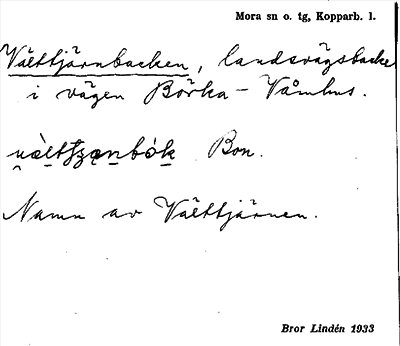 Mora sn o. tg, Kopparb. l.
Vålttjärnbacken, landsvägsbacke
i vägen Börka - Våmhus.
Bon.
Namn av Vålttjärnen.
Bror Lindén 1933